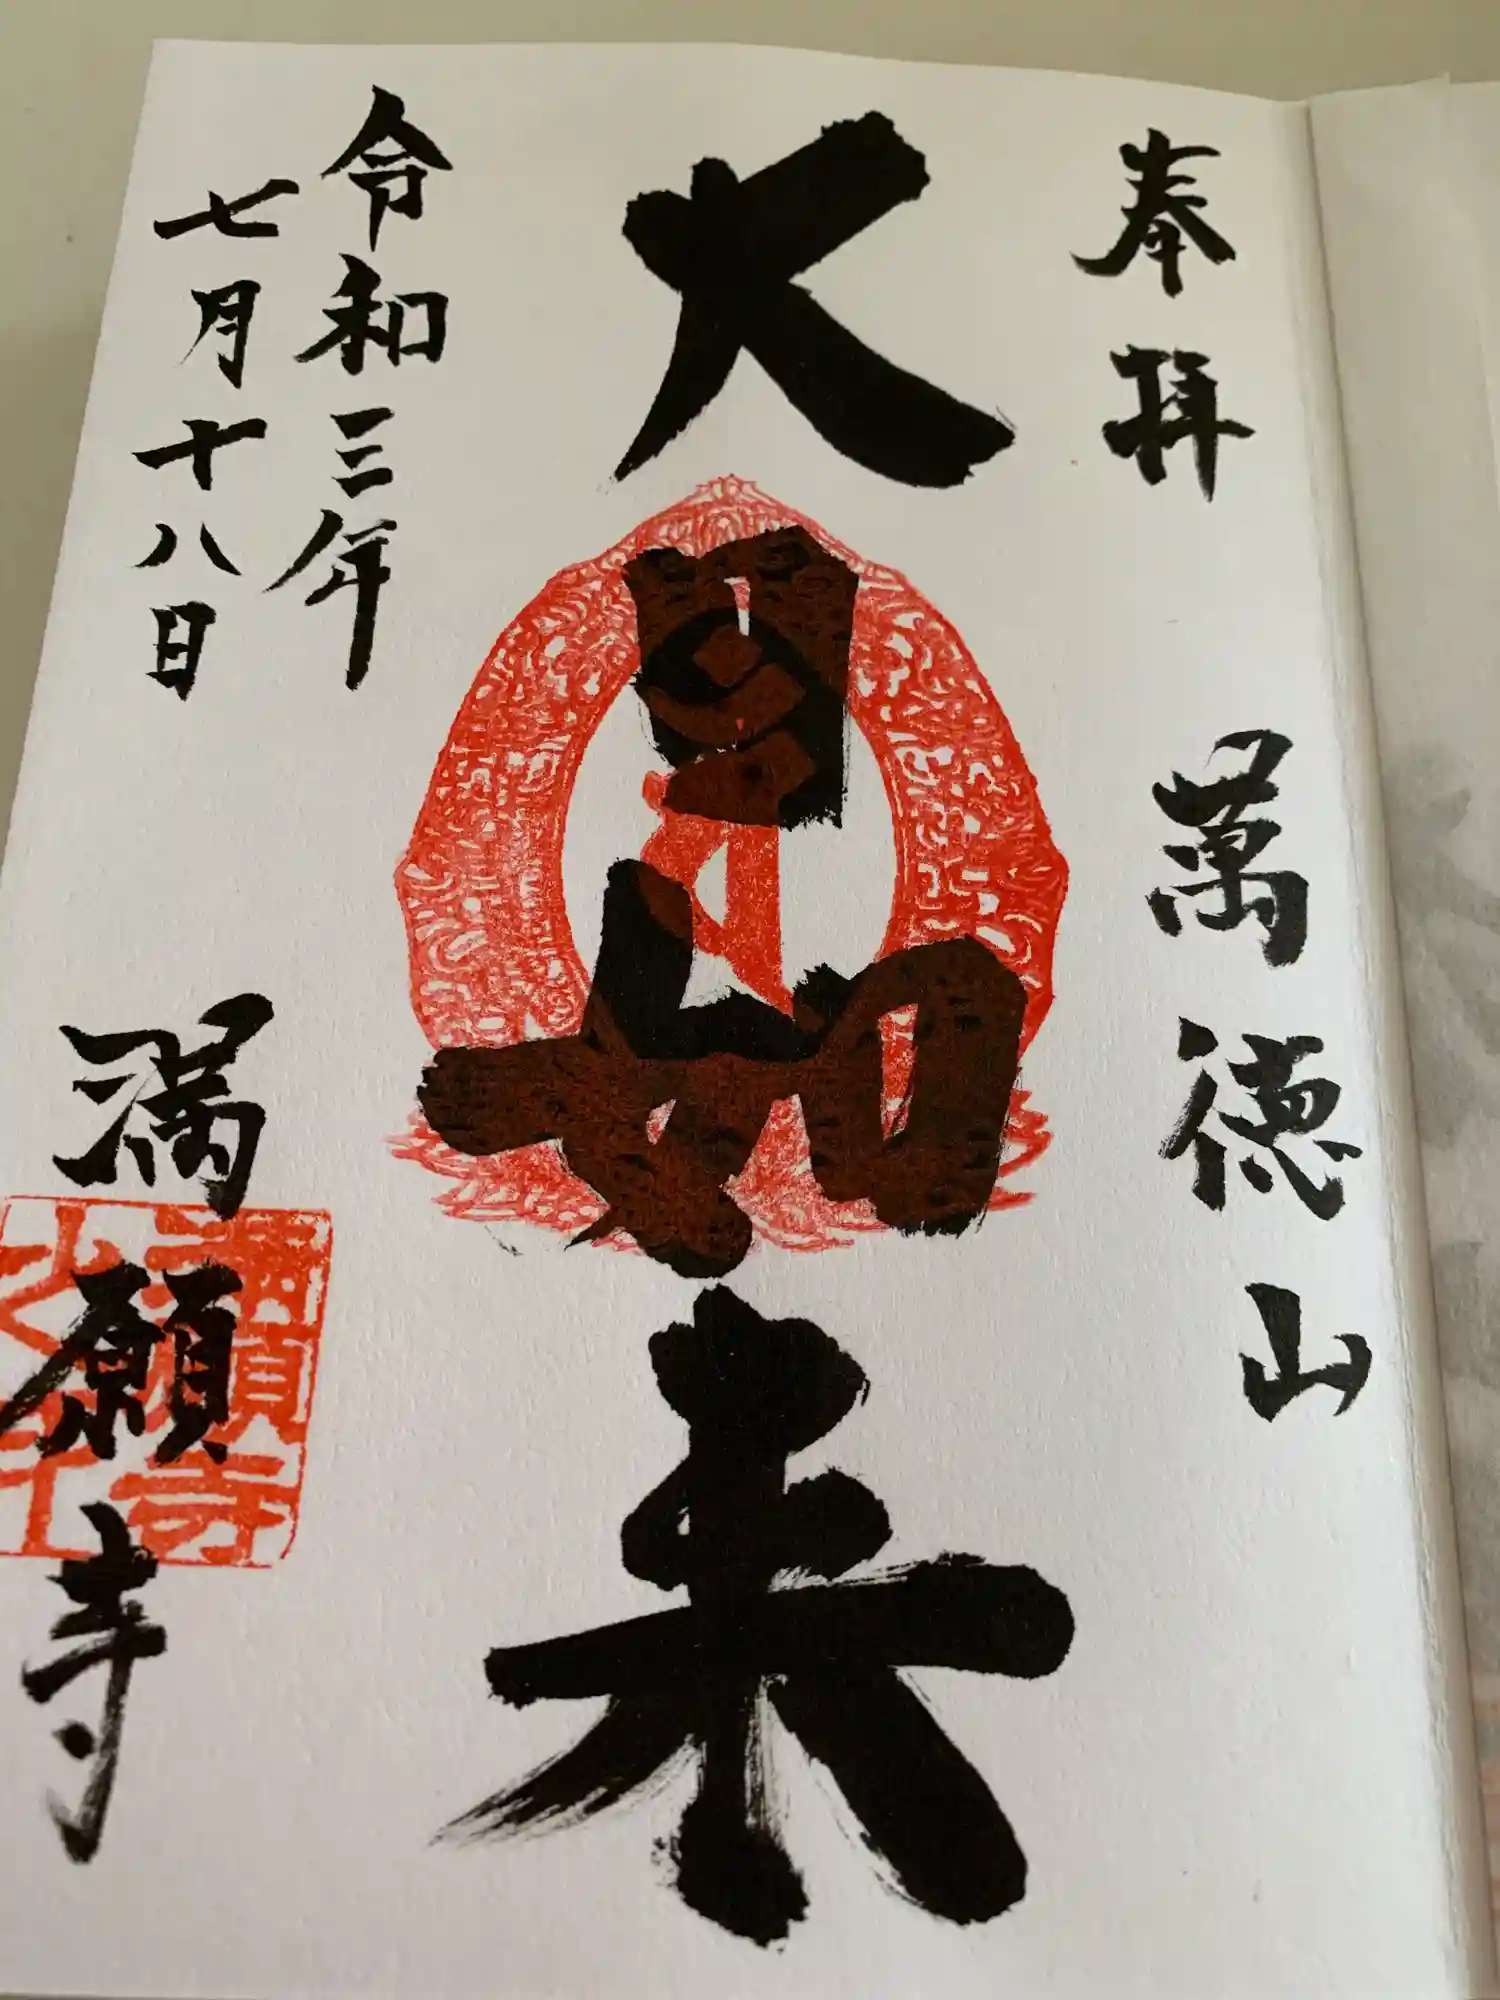 奉拝
萬徳山
大日如来
令和三年
七月十八日
満願寺
満願寺